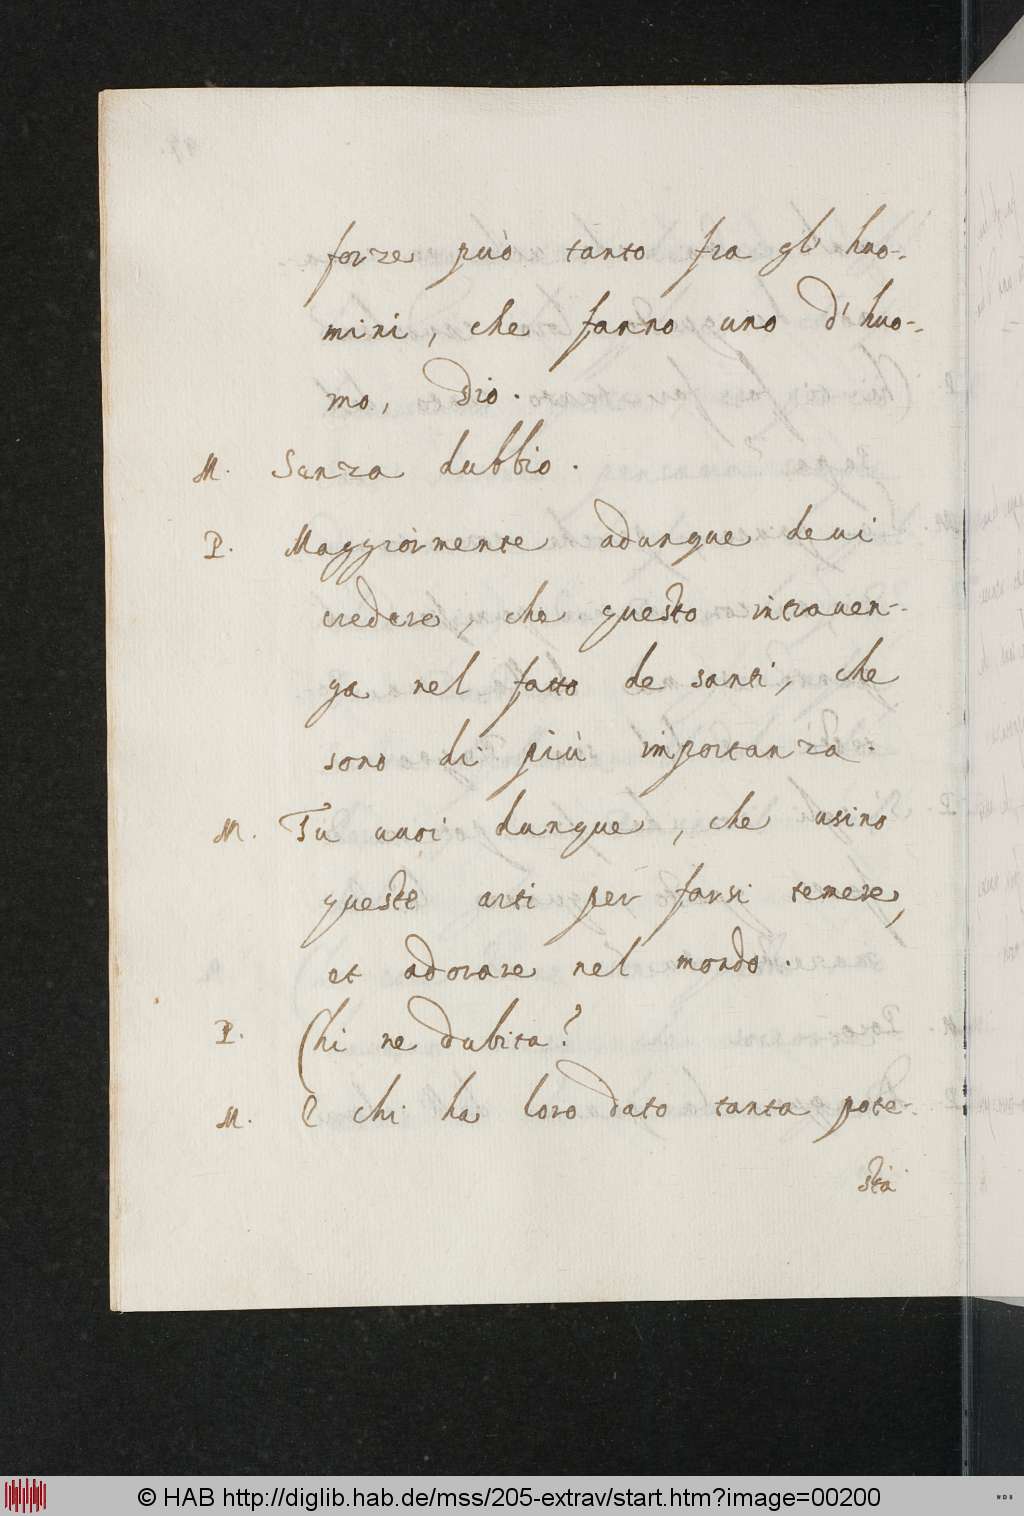 forze può tanto fra gl' huo-
mini, che fanno uno d' huo-
mo, Dio.
M. Senza dubbio.
P. Maggiormente adunque deui
credere, che questo intrauen-
ga nel fatto de santi, che
sono di più importanza.
M. Tu uuoi dunque, che usino
queste arti per farsi temere,
et adorare nel mondo.
P. Chi ne dubita?
M. E chi ha loro dato tanta pote-
stà
© HAB http://diglib.hab.de/mss/205-extrav/start.htm?image=00200